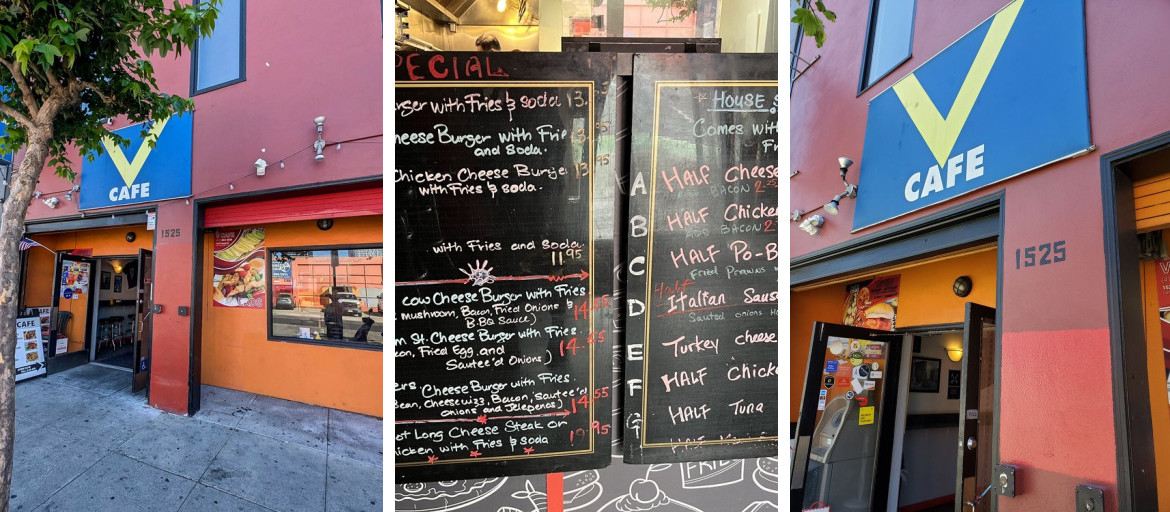 V
CAFE
1525
CAFE
PECIAL
rger with Fries & soda 13.
heese Burger with Frie
and Soda.
Chicken Cheese Burge 13.95
with Fries & soda.
with Fries and Soda.
11.95
cow Cheese Burger with Fries
mushroom, Bacon, Fried Onions &
B.B.Q Sauce)
m St. Cheese Burger with Fries.
con, Fried Egg, and 14.
Sautee'd Onions)
ers. Cheese Burger with Fries.
Bean, Cheesewizz, Bacon, Sautee'd
onions and Jelepenos)
oot Long Cheese Steak or
hicken with Fries & Soda 19.95
HOUSE S
Comes with
Fr
A HALF Cheese
BACON 2
B HALF Chicke
ADD BACON 2
C HALF Po-B
Fried Prawns w
Half
D Italian Saus
Sauteed onions
E Turkey cheese
F HALF Chick
G HALF Tuna
FRIE
V
CAFE
1525